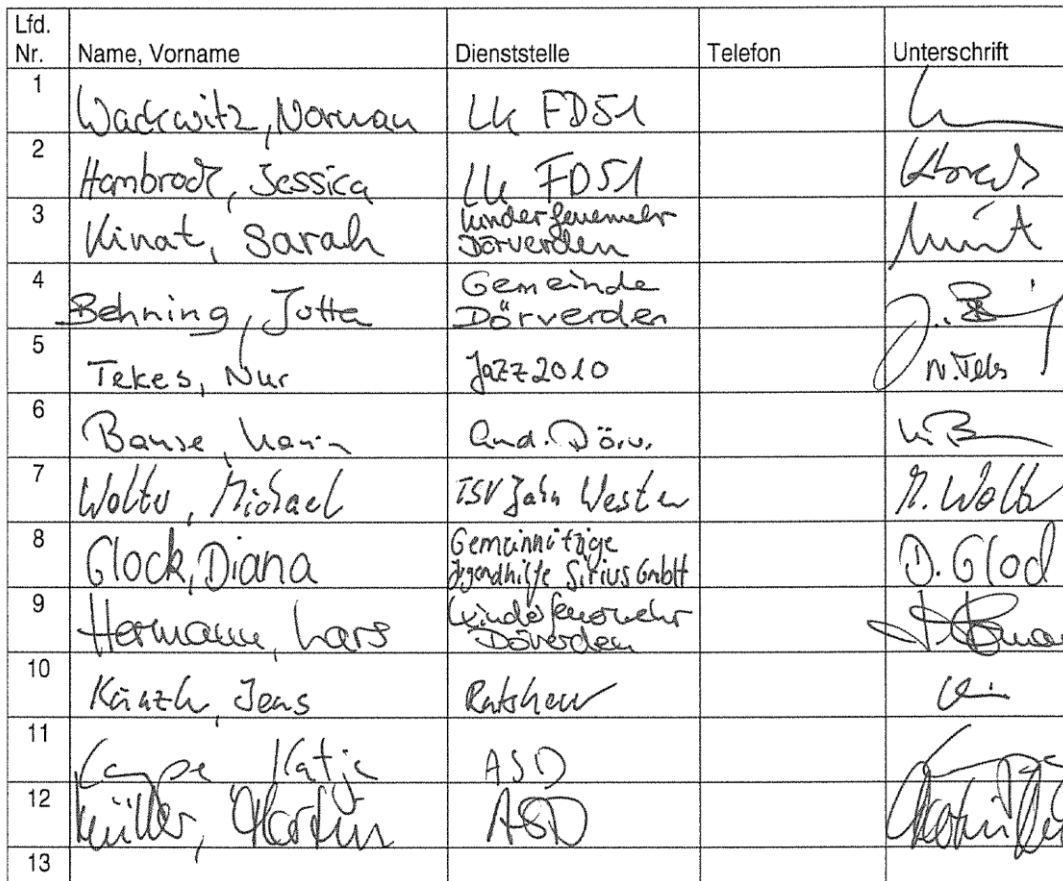 Lfd.
Nr. Name, Vorname Dienststelle Telefon Unterschrift
1 Wackwitz, Norman LK FD51
2 Hambrock, Jessica LK FD51
3 Kinat, Sarah Kinderfeuerwehr
Dörverden
4 Behning, Jutta Gemeinde
Dörverden
5 Tekes, Nur Jazz2010 N. Tekes
6 Banse, Karin
7 Michael TSV Jahn Westen M.
8 Glock, Diana Gemeinnützige
Jugendhilfe Sirius GmbH D. Glock
9 Hermann, Lars Kinderfeuerwehr
Dörverden
10 Jens Ratsherr
11 Katja ASD
12 Müller, Martin ASD
13